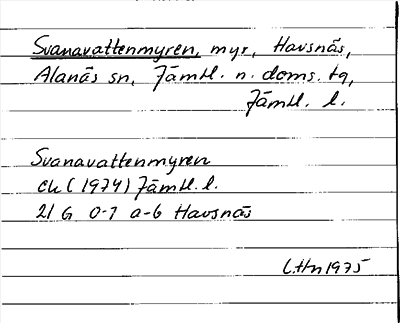 Svanavattenmyren, myr, Havsnäs,
Alanäs sn, Jämtl. n. doms. tg,
Jämtl. l.
Svanavattenmyren
ek (1974) Jämtl. l.
21 G 0-1 a-b Havsnäs
L.Hn 1975